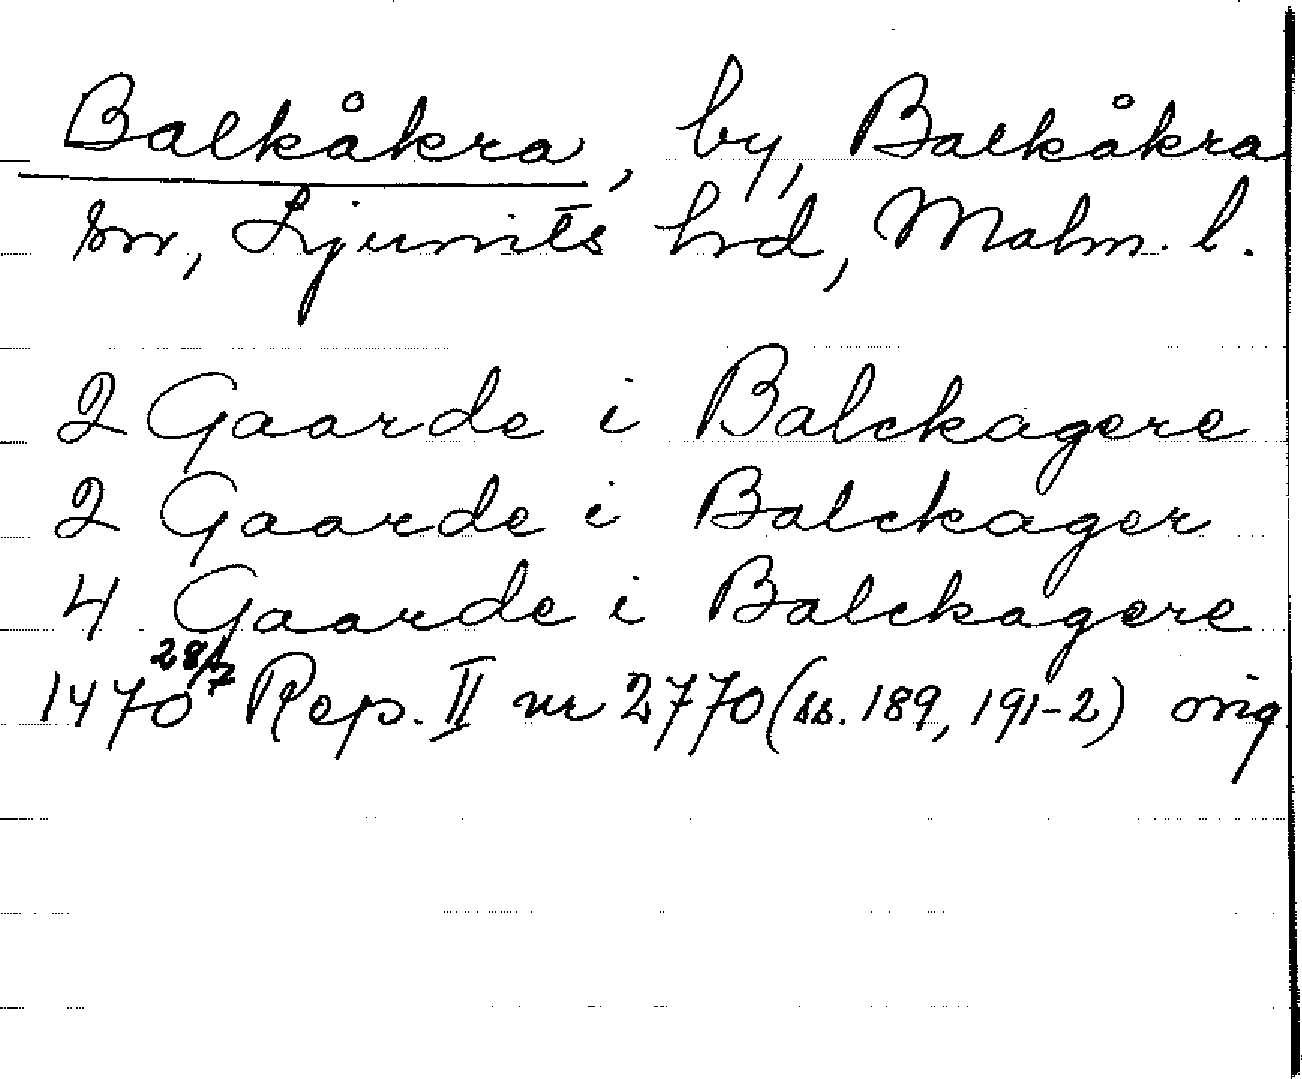 Balkåkra, by, Balkåkra
sn, Ljunits hd, Malm. l.
2 Gaarde i Balckagere
2 Gaarde i Balckager
4 Gaarde i Balckagere
1470 28/7 Rep. II nr 2770 (ss. 189, 191-2) orig